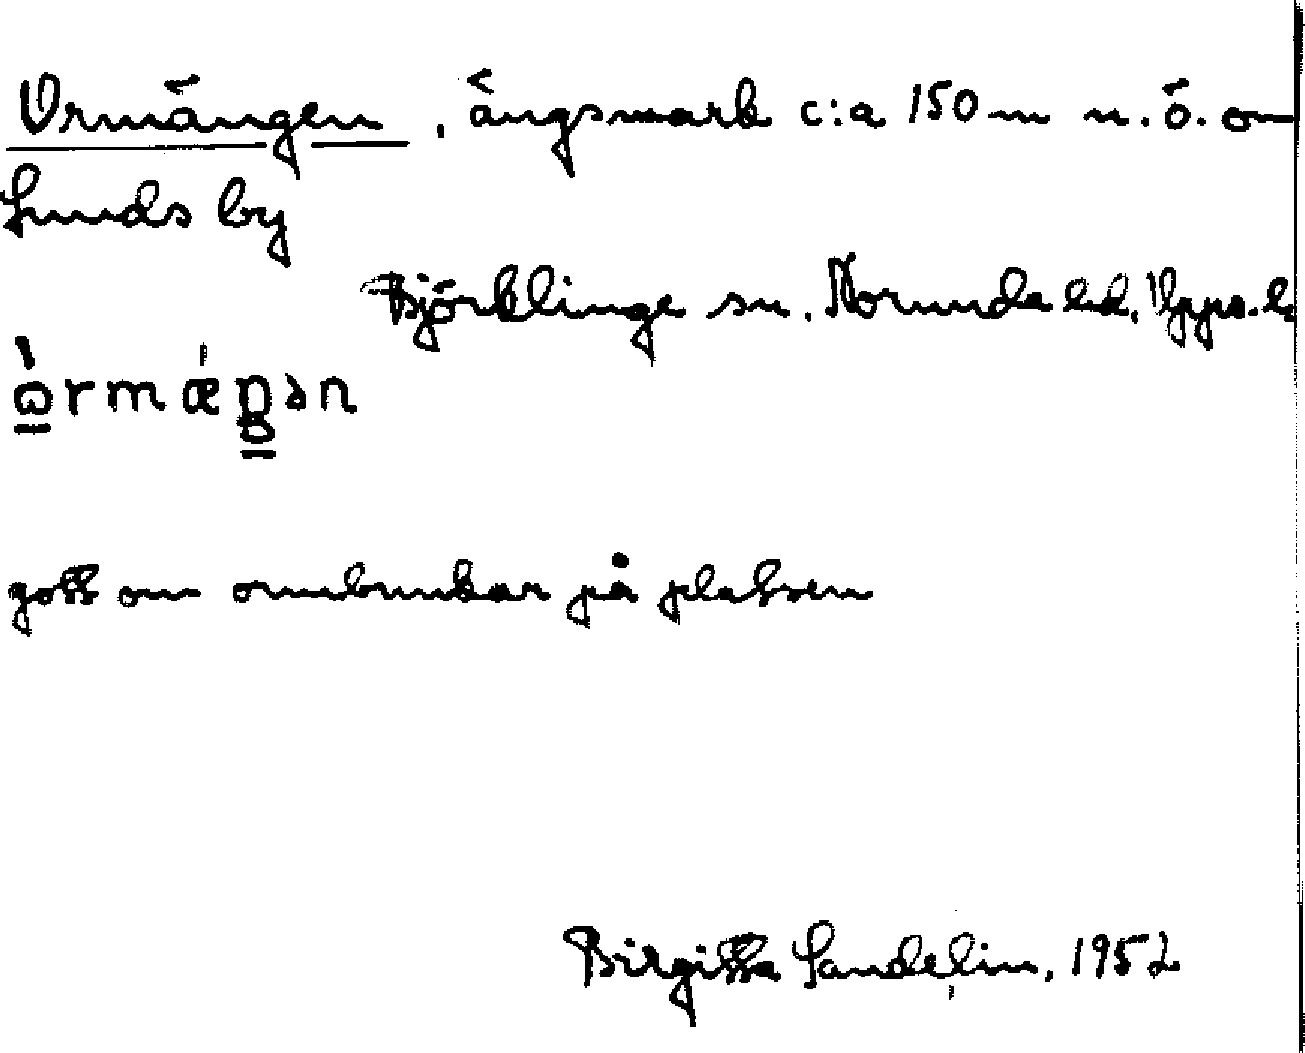 Ormängen, ängsmark c:a 150 m n.ö. om
Lunds by
Björklinge sn. Norunda hd. Upps. l.
gott om ormbunkar på platsen
Birgitta Sandelin, 1952